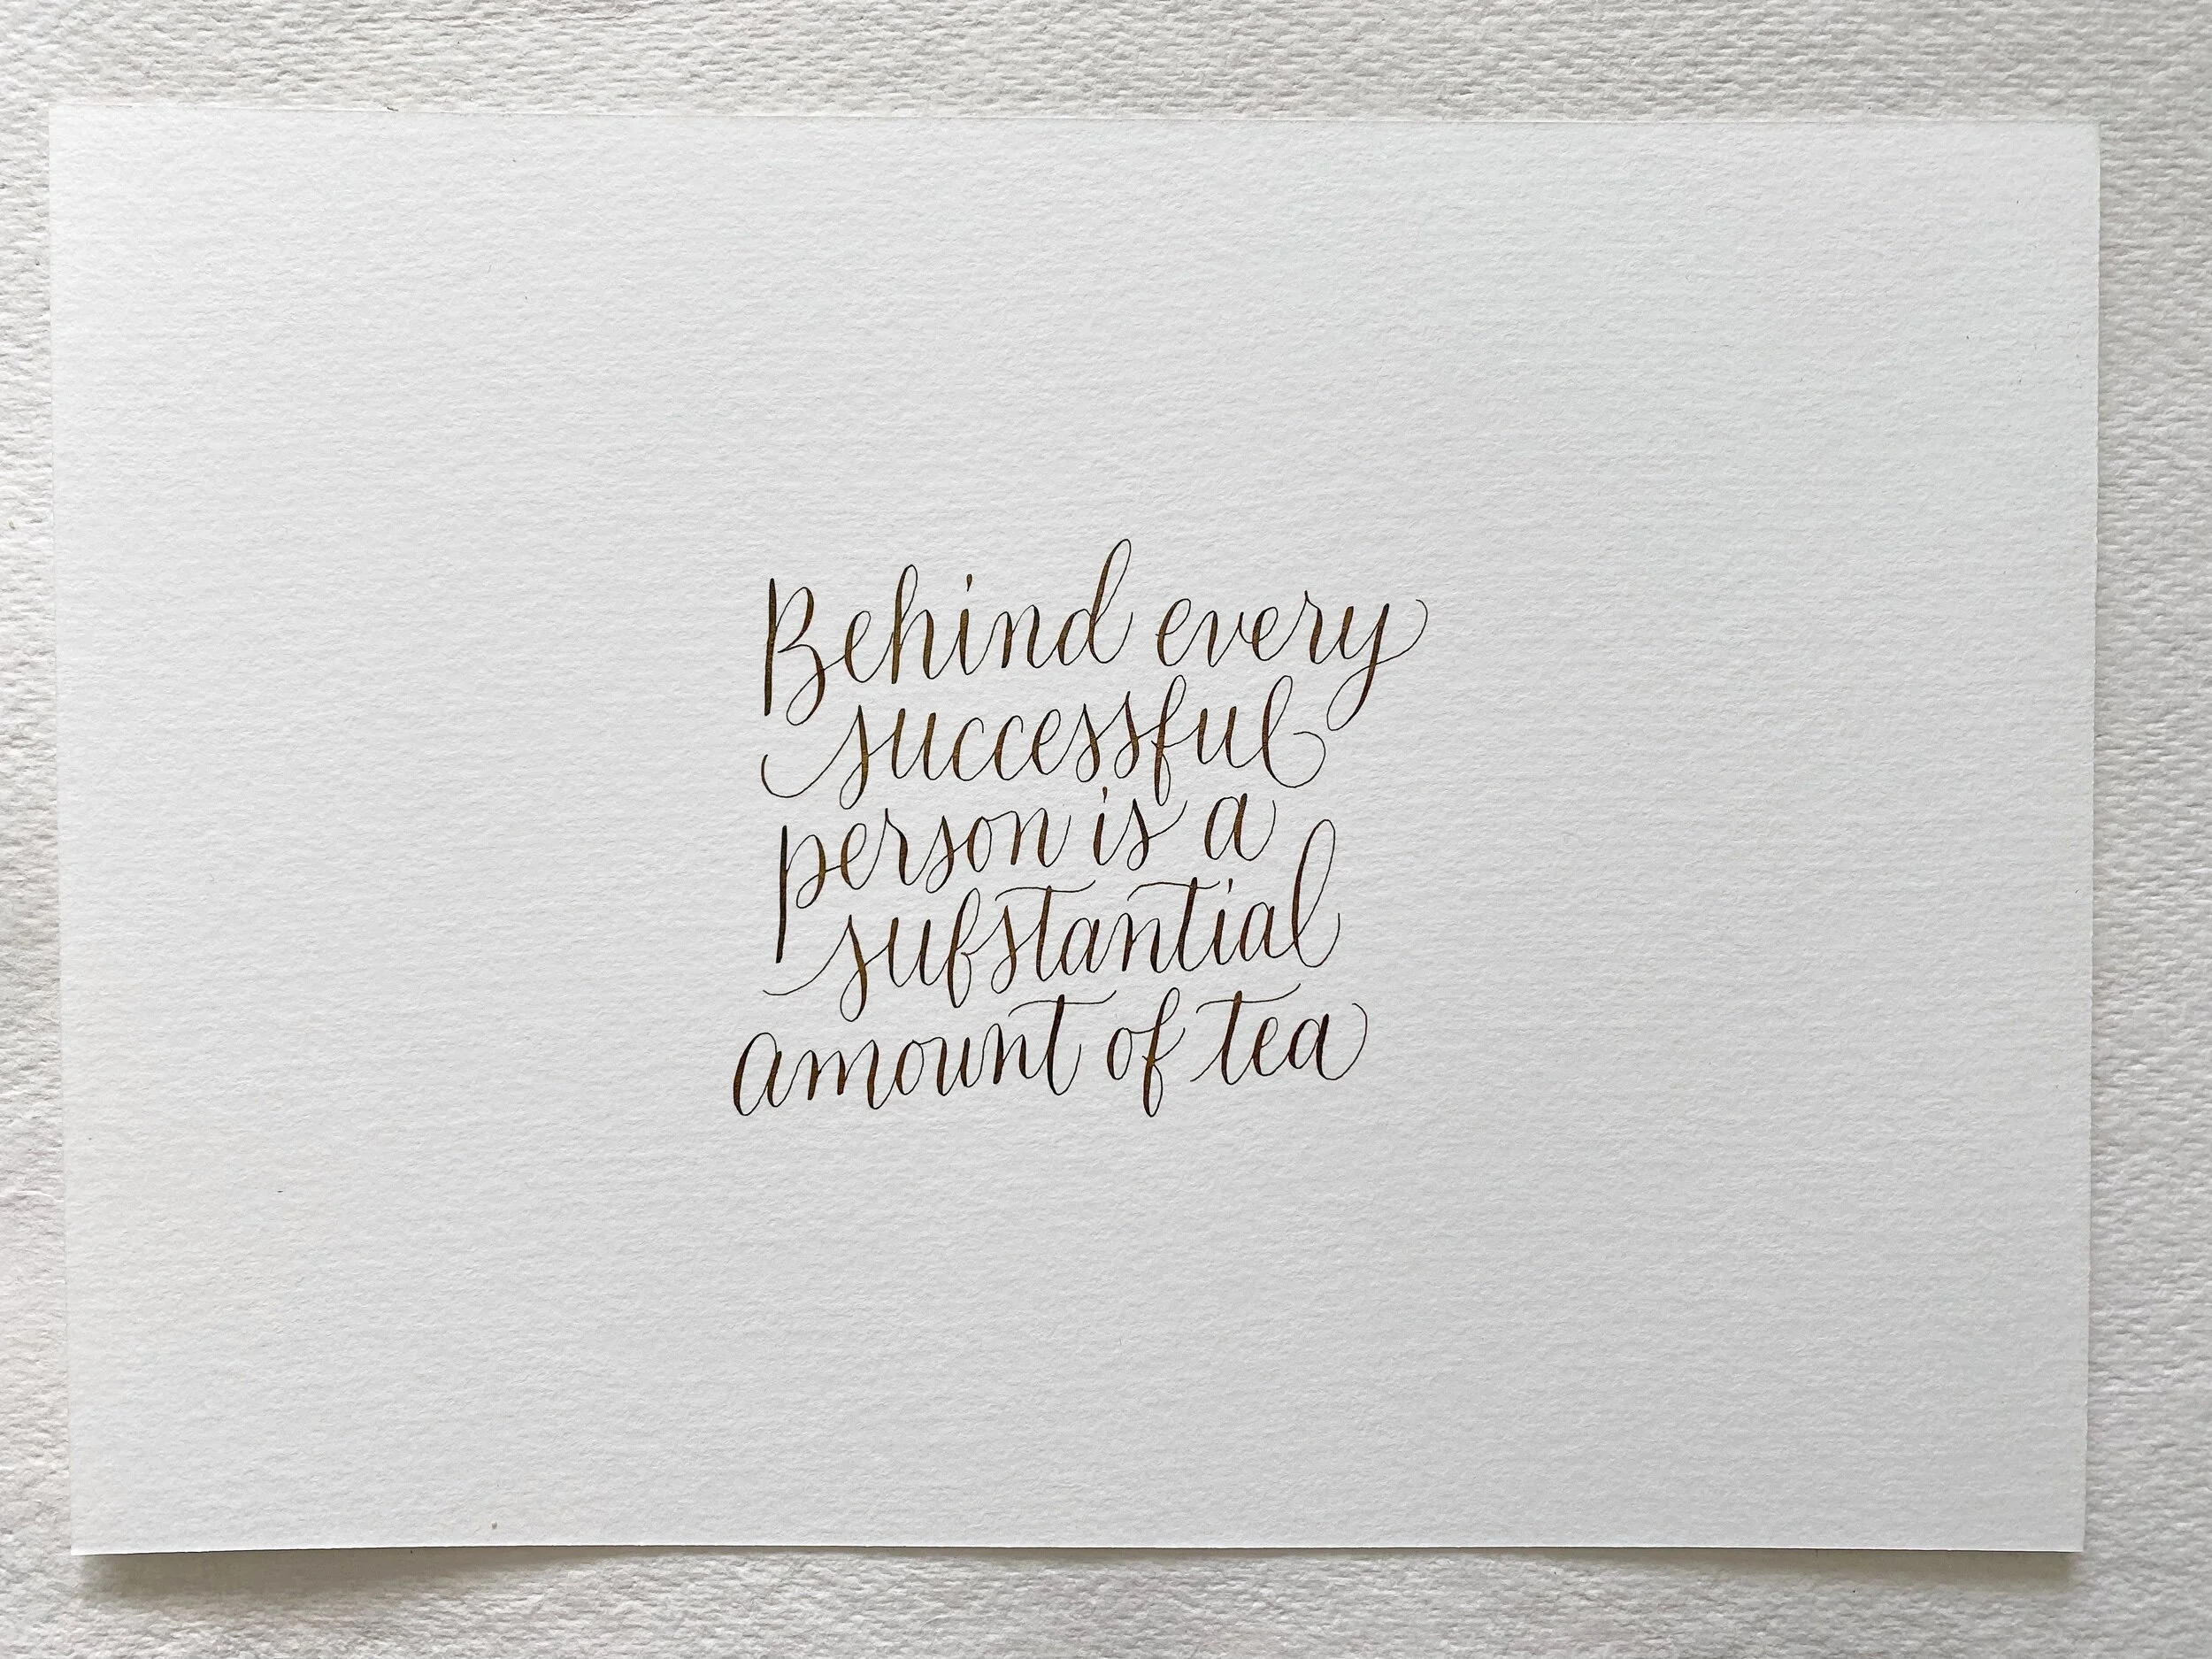 Behind every
successful
person is a
substantial
amount of tea